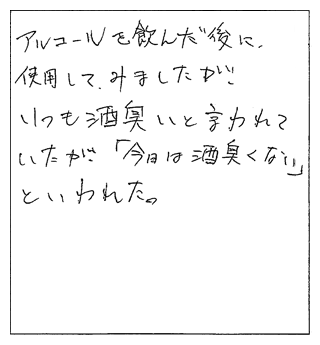 アルコールを飲んだ後に、
使用して、みましたが、
いつも酒臭いと言われて
いたが「今日は酒臭くない」
といわれた。